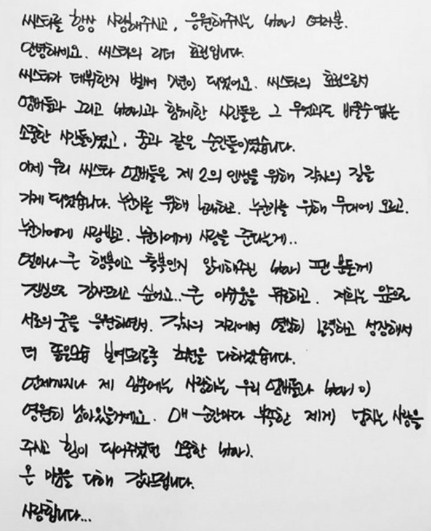 씨스타를 항상 사랑해주시고, 응원해주시는 star1 여러분.
안녕하세요. 씨스타의 리더 효린입니다.
씨스타가 데뷔한지 벌써 7년이 되었어요. 씨스타의 효린으로서
멤버들과 그리고 star1과 함께한 시간들은 그 무엇과도 바꿀수 없는
소중한 시간들이였고, 꿈과 같은 순간들이였습니다.
이제 우리 씨스타 멤버들은 제 2의 인생을 위해 각자의 길을
가게 되었습니다. 누군가를 위해 노래하고, 누군가를 위해 무대에 오르고,
누군가에게 사랑받고, 누군가에게 사랑을 준다는게..
얼마나 큰 행복이고 축복인지 알게해주신 star1 팬분들께
진심으로 감사드리고 싶어요.. 큰 아쉬움을 뒤로하고, 저희는 앞으로
서로의 꿈을 응원하면서, 각자의 자리에서 열심히 노력하고 성장해서
더 좋은모습 보여드리도록 최선을 다하겠습니다.
언제까지나 제 마음속에는 사랑하는 우리 멤버들과 star1이
영원히 남아있을거에요. 매 순간마다 부족한 제게 넘치는 사랑을
주시고 힘이 되어주셨던 소중한 star1.
온 마음을 다해 감사드립니다.
사랑합니다...